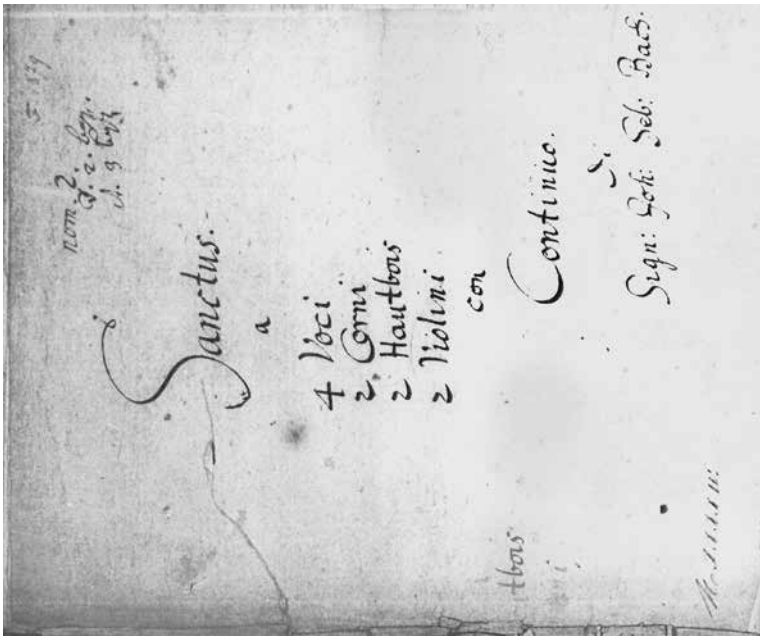 nom. 2.
Sanctus.
a
4 Voci
2 Corni
2 Hautbois
2 Violini
con
Continuo.
di
Sign: Joh: Seb: Bach.
tbois
ni